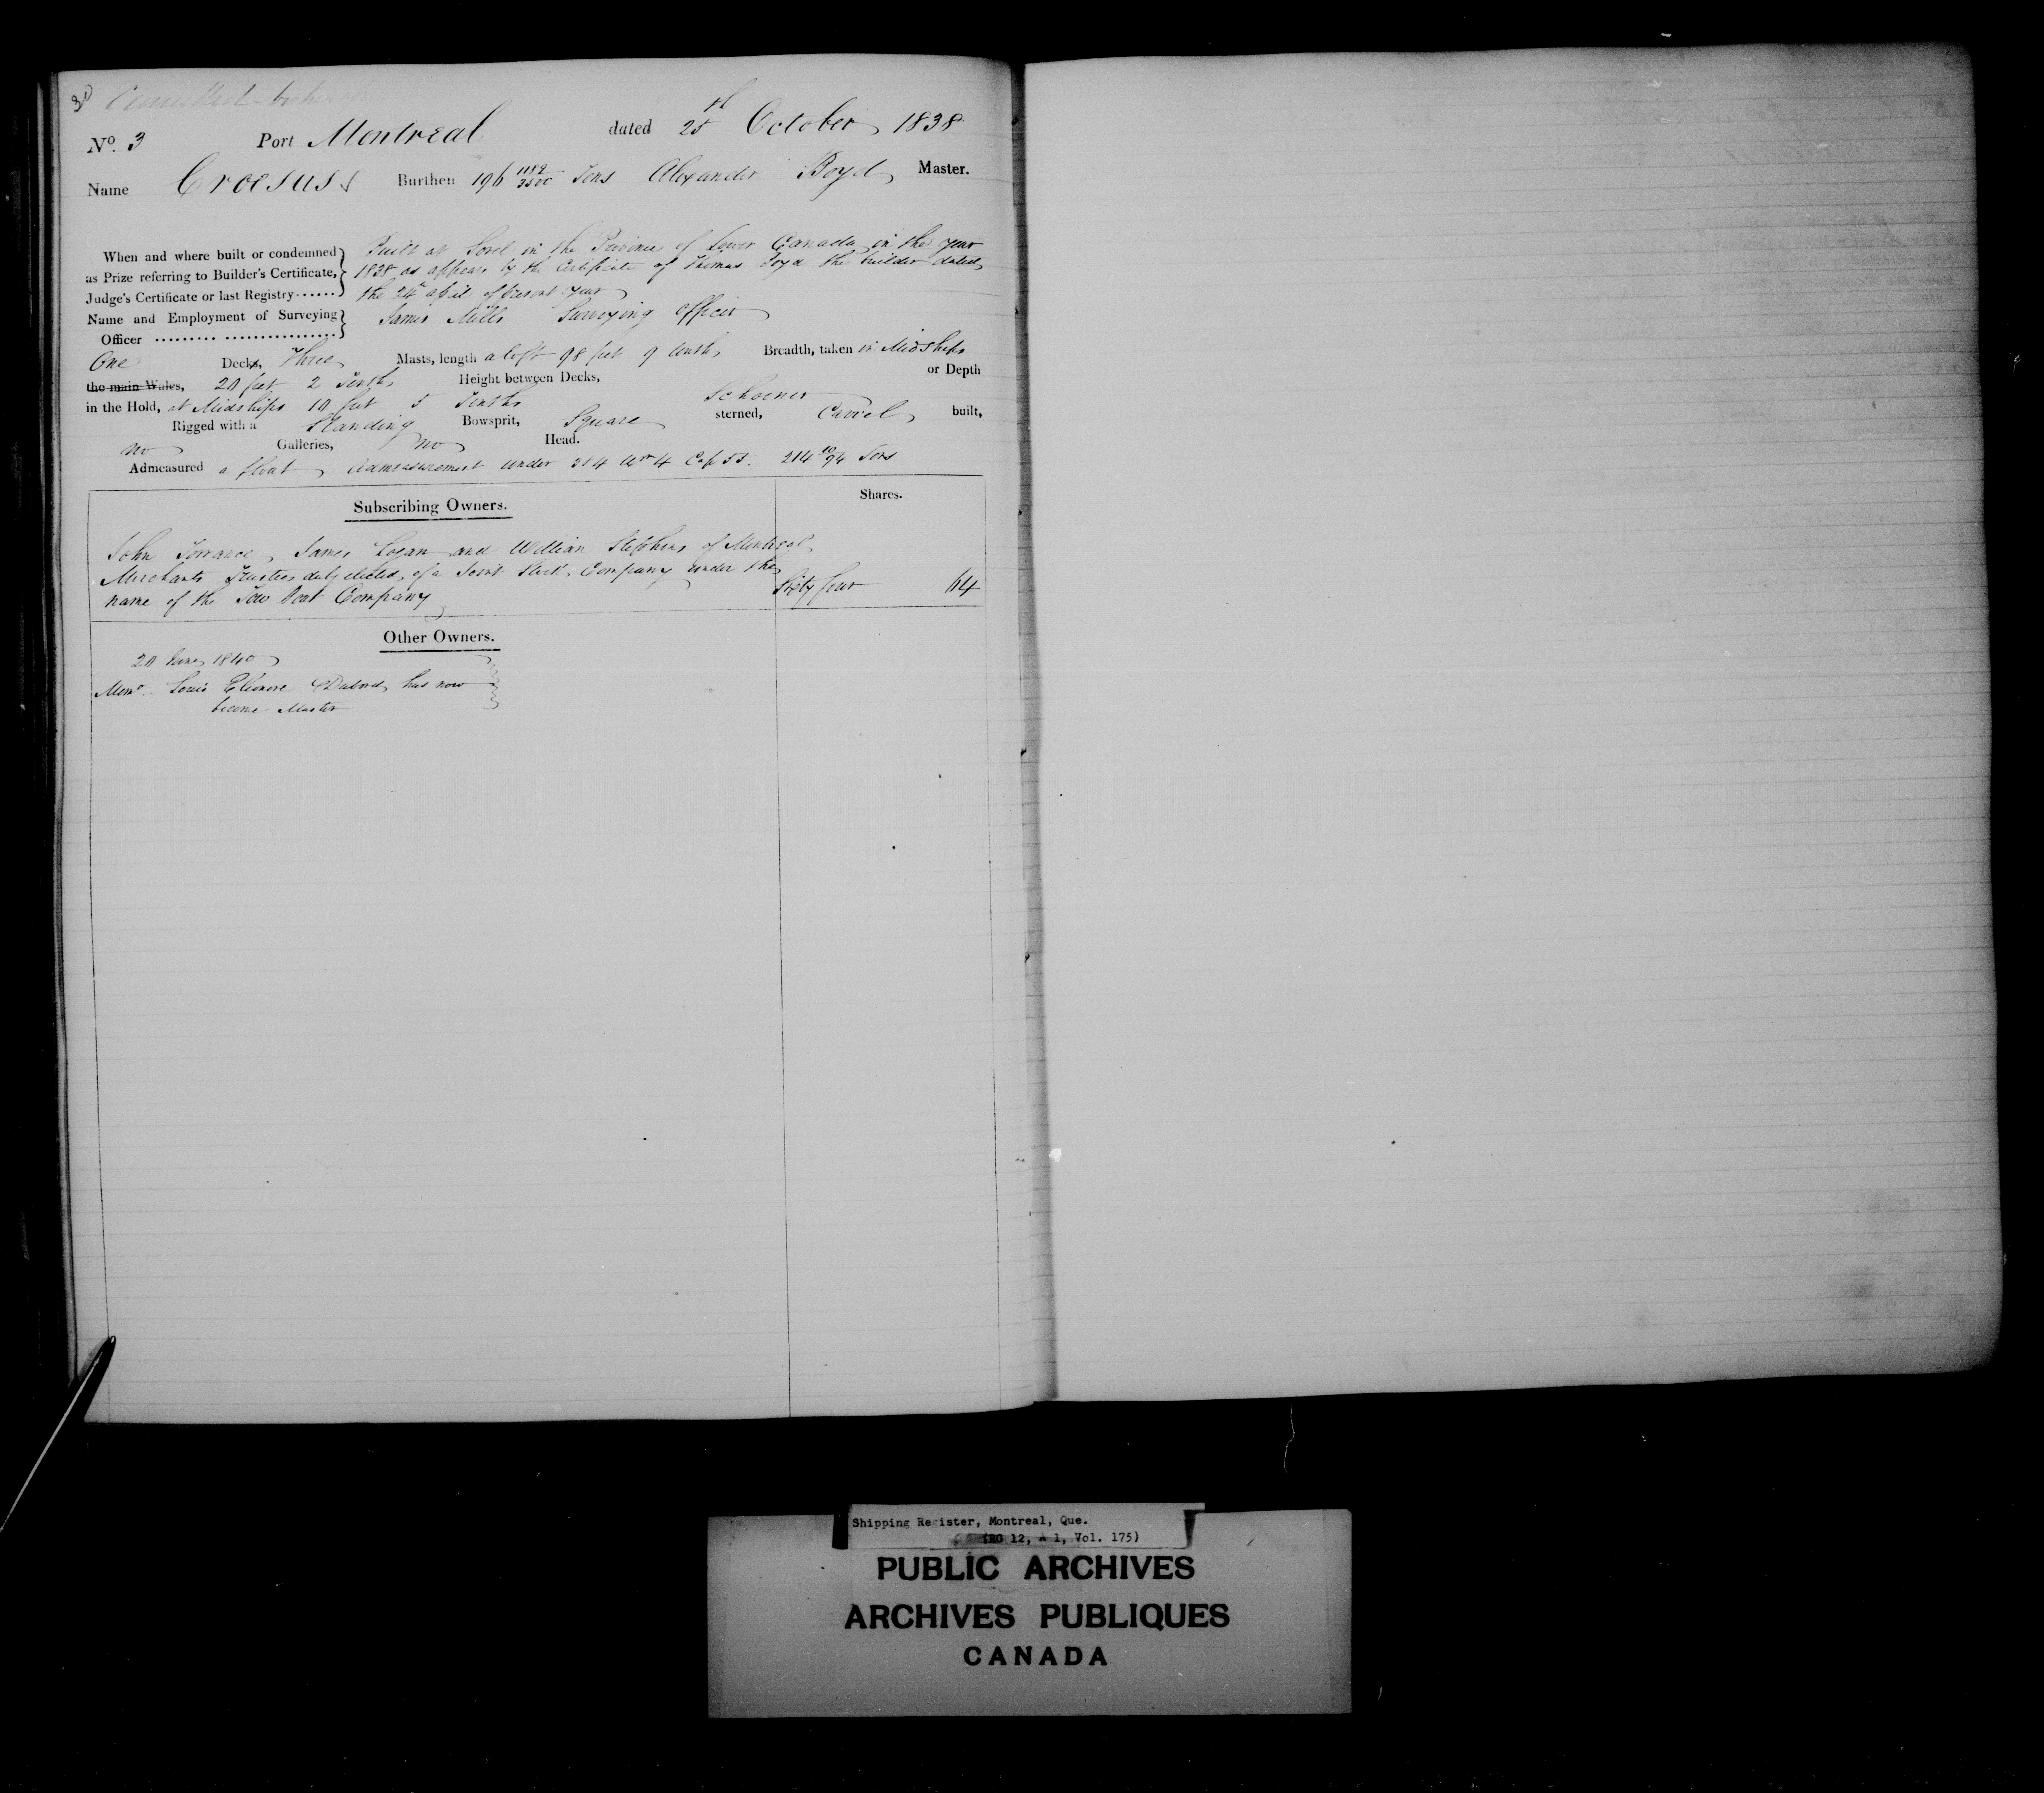 Cancelled
No. 3 Port Montreal dated 25th October 1838
Name Croesus Burthen 196 1182/3500 Tons Alexander Boyd Master.
When and where built or condemned as Prize referring to Builder's Certificate, Judge's Certificate or last Registry......
Built at Sorel in the Province of Lower Canada in the year
1838 as appears by the Certificate of Thomas the builder dated
the 24th April of present year
Name and Employment of Surveying Officer ......... ...............
James Mills Surveying Officer
One Decks, Three Masts, length aloft 98 feet 9 tenths Breadth, taken in Midships
the main Wales, 20 feet 2 Tenths Height between Decks, or Depth
in the Hold, at Midships 10 feet 5 Tenths Schooner
Rigged with a Standing Bowsprit, Square sterned, Carvel built,
no Galleries, no Head.
Admeasured a float Admeasurement under 3 & 4 Wm 4 Cap 55. 214 10/94 Tons
Subscribing Owners. Shares.
John Torrance, James Logan and William Stephens of Montreal
Merchants Trustees duly elected of a Joint Stock Company under the
name of the Tow Boat Company Sixty four 64
Other Owners.
20 June 1840
Memo. Louis Eleonore has now
become Master
Shipping Register, Montreal, Que.
(RG 12, A 1, Vol. 175)
PUBLIC ARCHIVES
ARCHIVES PUBLIQUES
CANADA